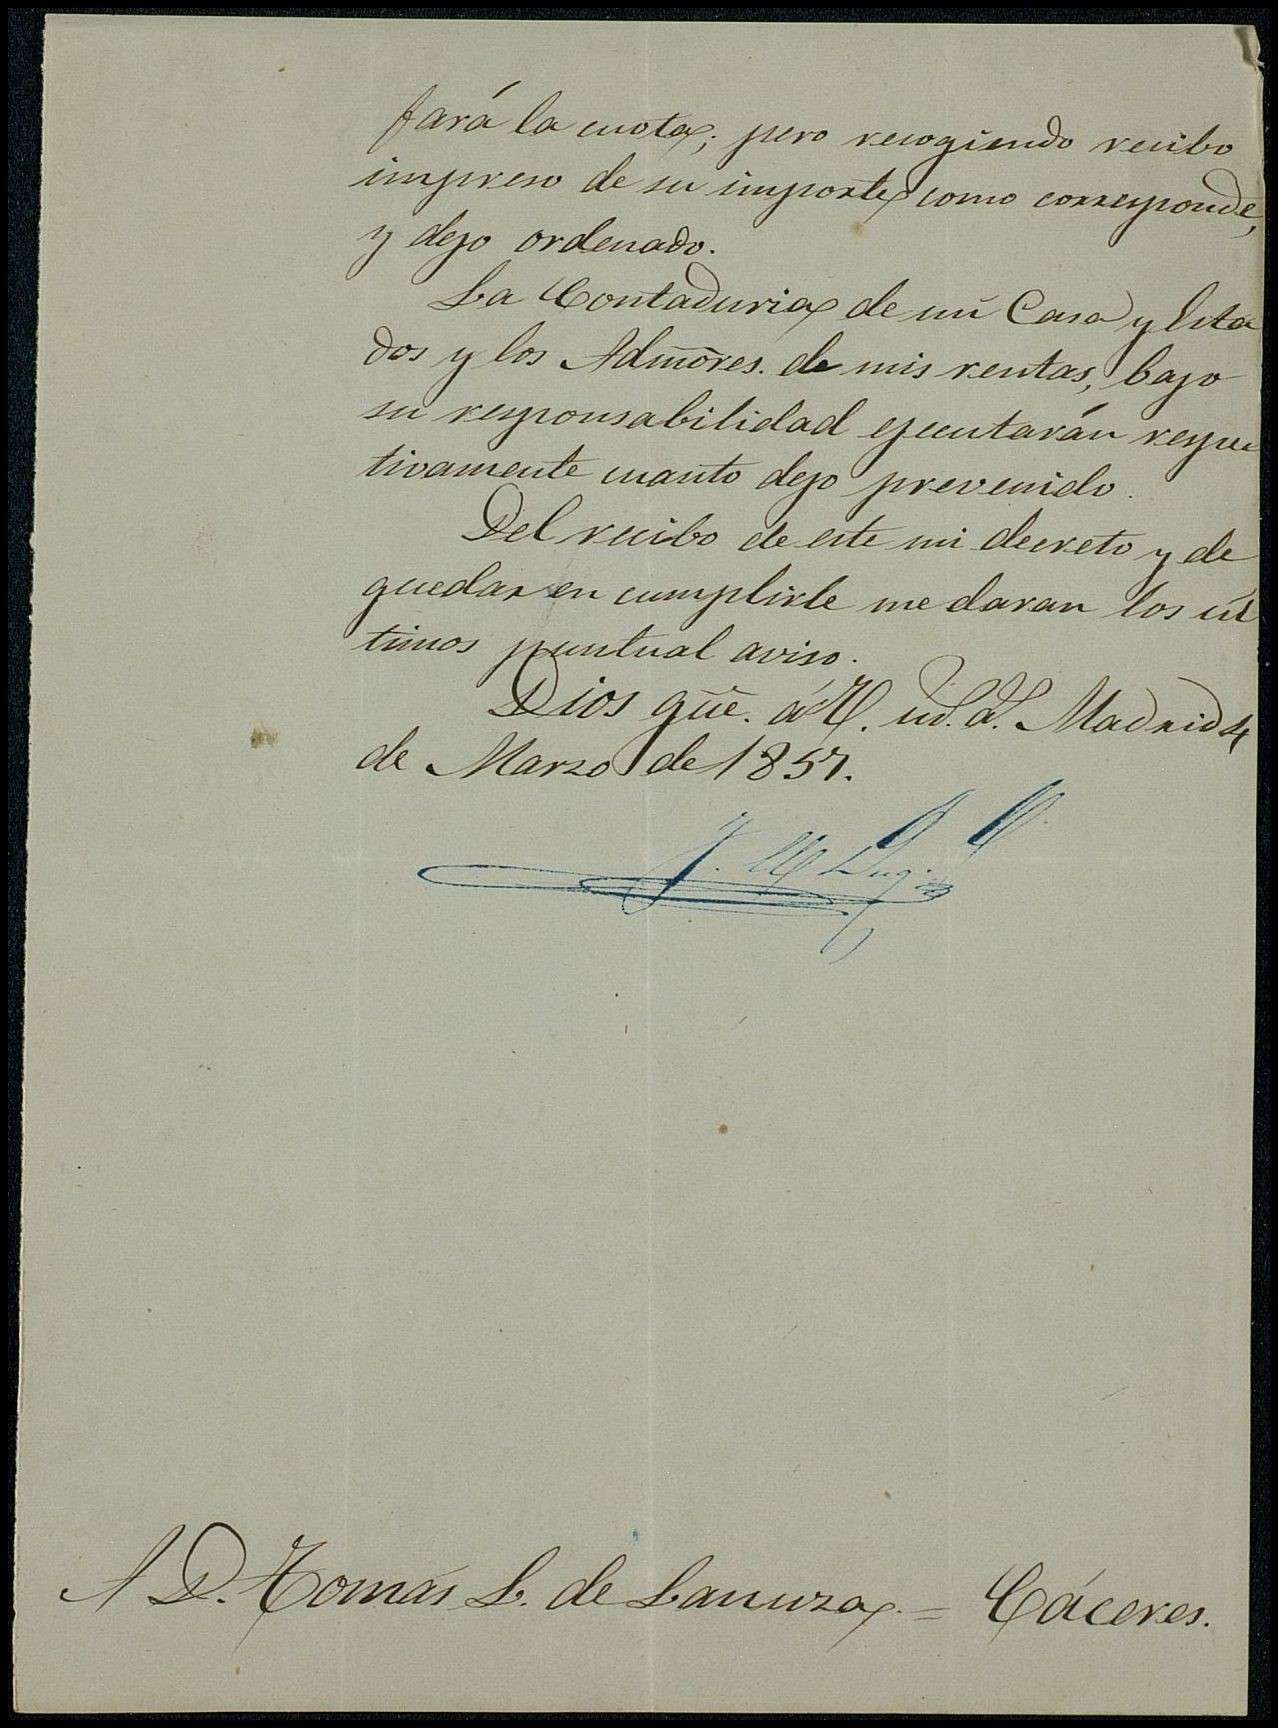 fará la cuota; pero recogiendo recibo
impreso de su importe como corresponde,
y dejo ordenado.
La Contaduria de mi Casa y Esta
dos y los Admōres. de mis rentas, bajo
su responsabilidad ejecutarán respec
tivamente cuanto dejo prevenido.
Del recibo de este mi decreto y de
quedar en cumplirle me daran los úl
timos puntual aviso.
Dios güe. á V. ms. as. Madrid 4
de Marzo de 1857.
A D. Tomás L. de Lanuza. = Cáceres.